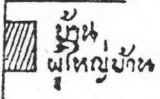 บ้าน
ผู้ใหญ่บ้าน